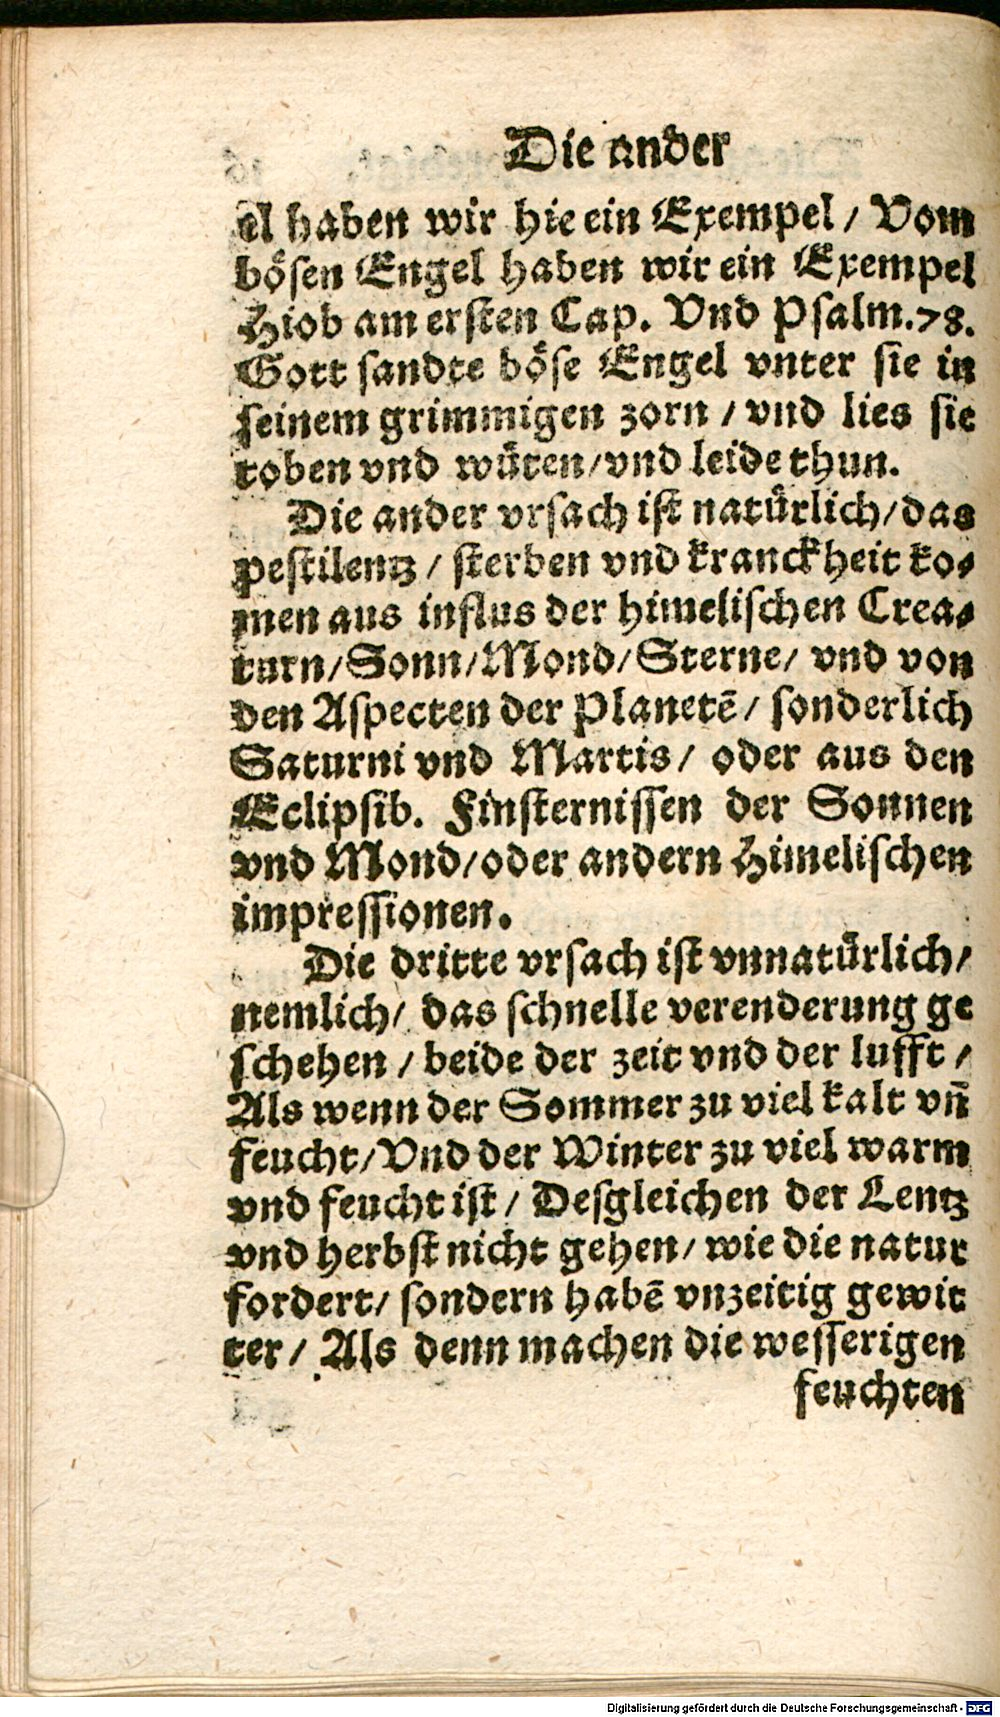 Die ander
el haben wir hie ein Exempel / Vom
bösen Engel haben wir ein Exempel
Hiob am ersten Cap. Vnd Psalm.78.
Gott sandte böse Engel vnter sie in
seinem grimmigen zorn / vnd lies sie
toben vnd wüten/vnd leide thun.
Die ander vrsach ist natürlich/das
pestilentz / sterben vnd kranckheit ko⸗
men aus influs der himelischen Crea⸗
turn/Sonn/Mond/Sterne/ vnd von
den Aspecten der Planetē/ sonderlich
Saturni vnd Martis/ oder aus den
Eclipsib. Finsternissen der Sonnen
vnd Mond/oder andern Himelischen
impressionen.
Die dritte vrsach ist vnnatürlich/
nemlich/ das schnelle verenderung ge
schehen / beide der zeit vnd der lufft /
Als wenn der Sommer zu viel kalt vn̄
feucht/Vnd der Winter zu viel warm
vnd feucht ist / Desgleichen der Lentz
vnd herbst nicht gehen/ wie die natur
fordert/ sondern habē vnzeitig gewit
ter / Als denn machen die wesserigen
feuchten
Digitalisierung gefördert durch die Deutsche Forschungsgemeinschaft - DFG